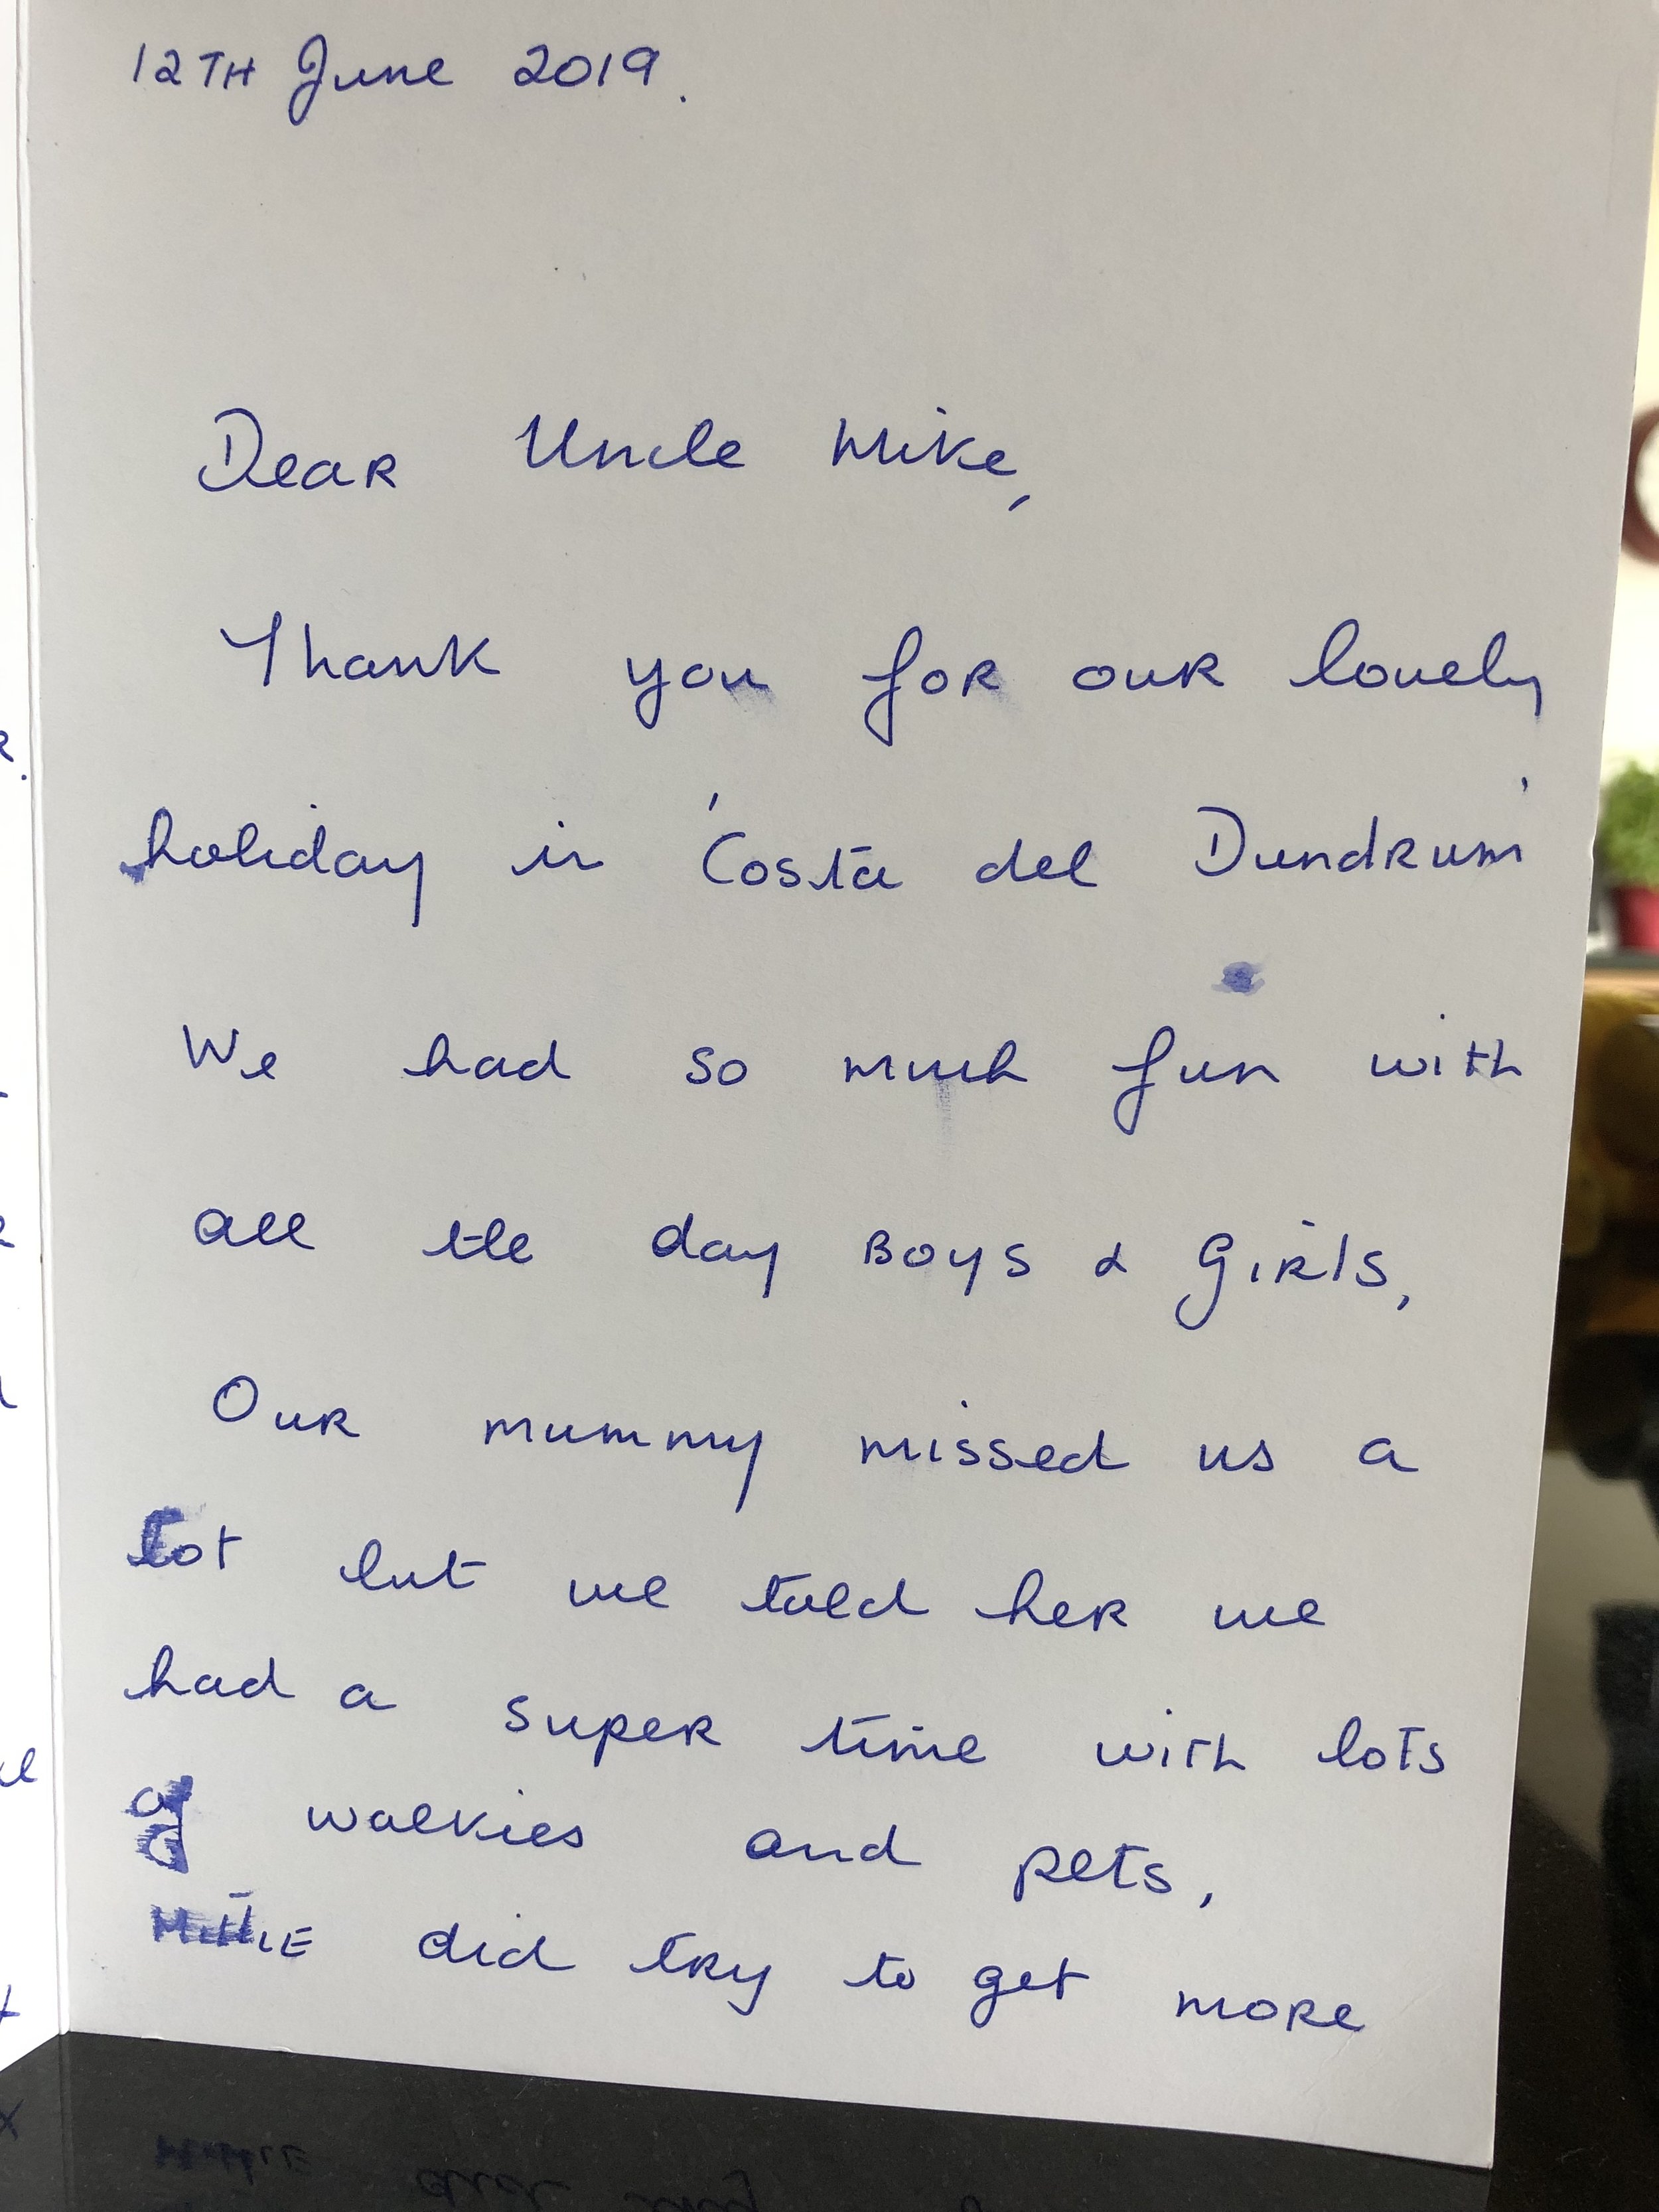 12TH June 2019.
Dear Uncle Mike,
Thank you for our lovely
holiday in 'Costa del Dundrum'
We had so much fun with
all the day Boys & Girls,
Our mummy missed us a
lot but we told her we
had a super time with lots
of walkies and pets,
did try to get more